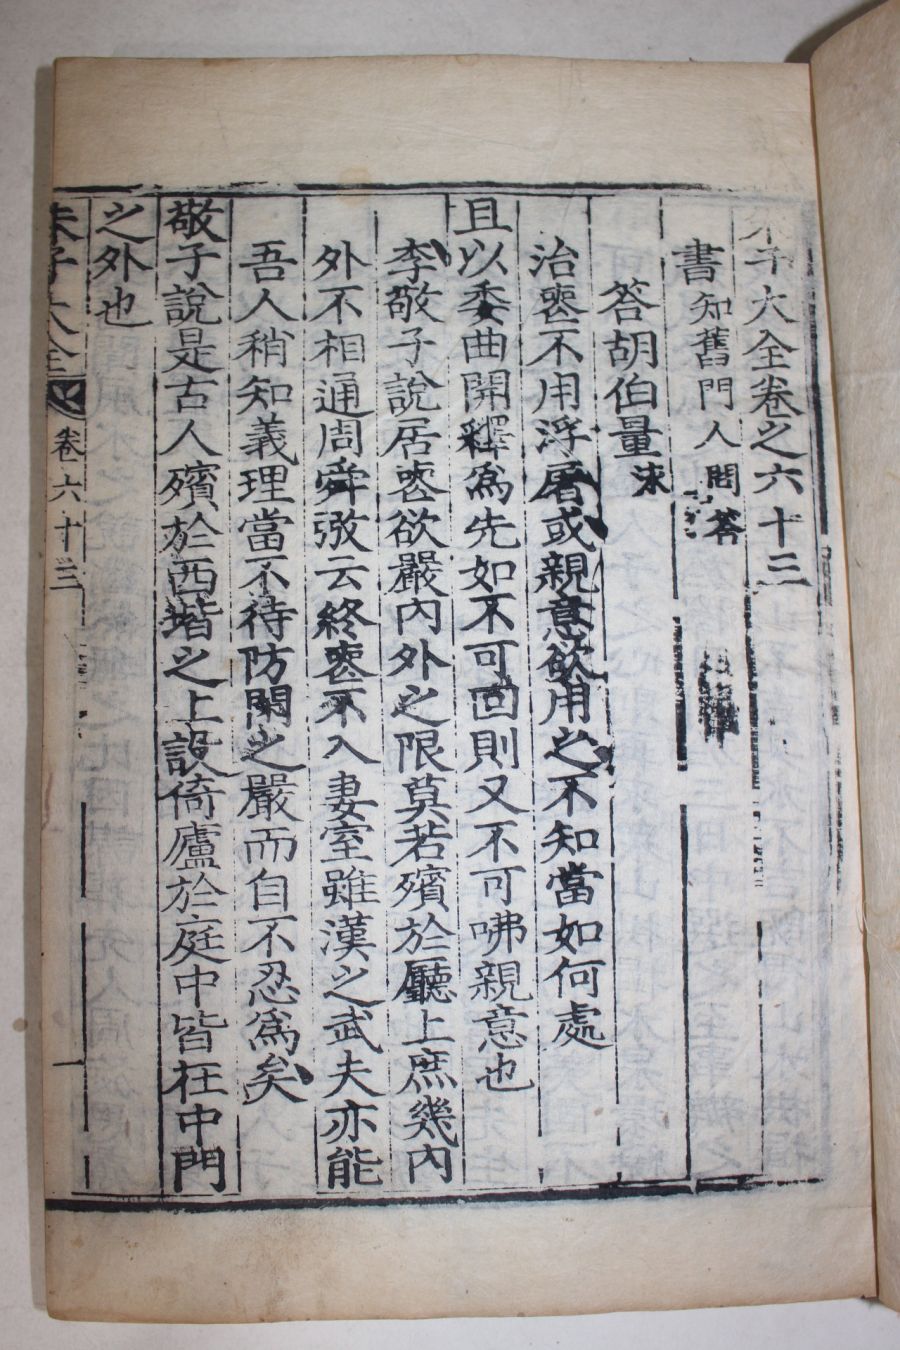 朱子大全卷之六十三
書知舊門人問答
答胡伯量泳
治喪不用浮屠或親意欲用之不知當如何處
且以委曲開釋爲先如不可回則又不可咈親意也
李敬子說居喪欲嚴內外之限莫若殯於廳上庶幾內
外不相通周舜弼云終喪不入妻室雖漢之武夫亦能
吾人稍知義理當不待防閑之嚴而自不忍爲矣
敬子說是古人殯於西堦之上設倚廬於庭中皆在中門
之外也
朱子大全 卷六十三 一